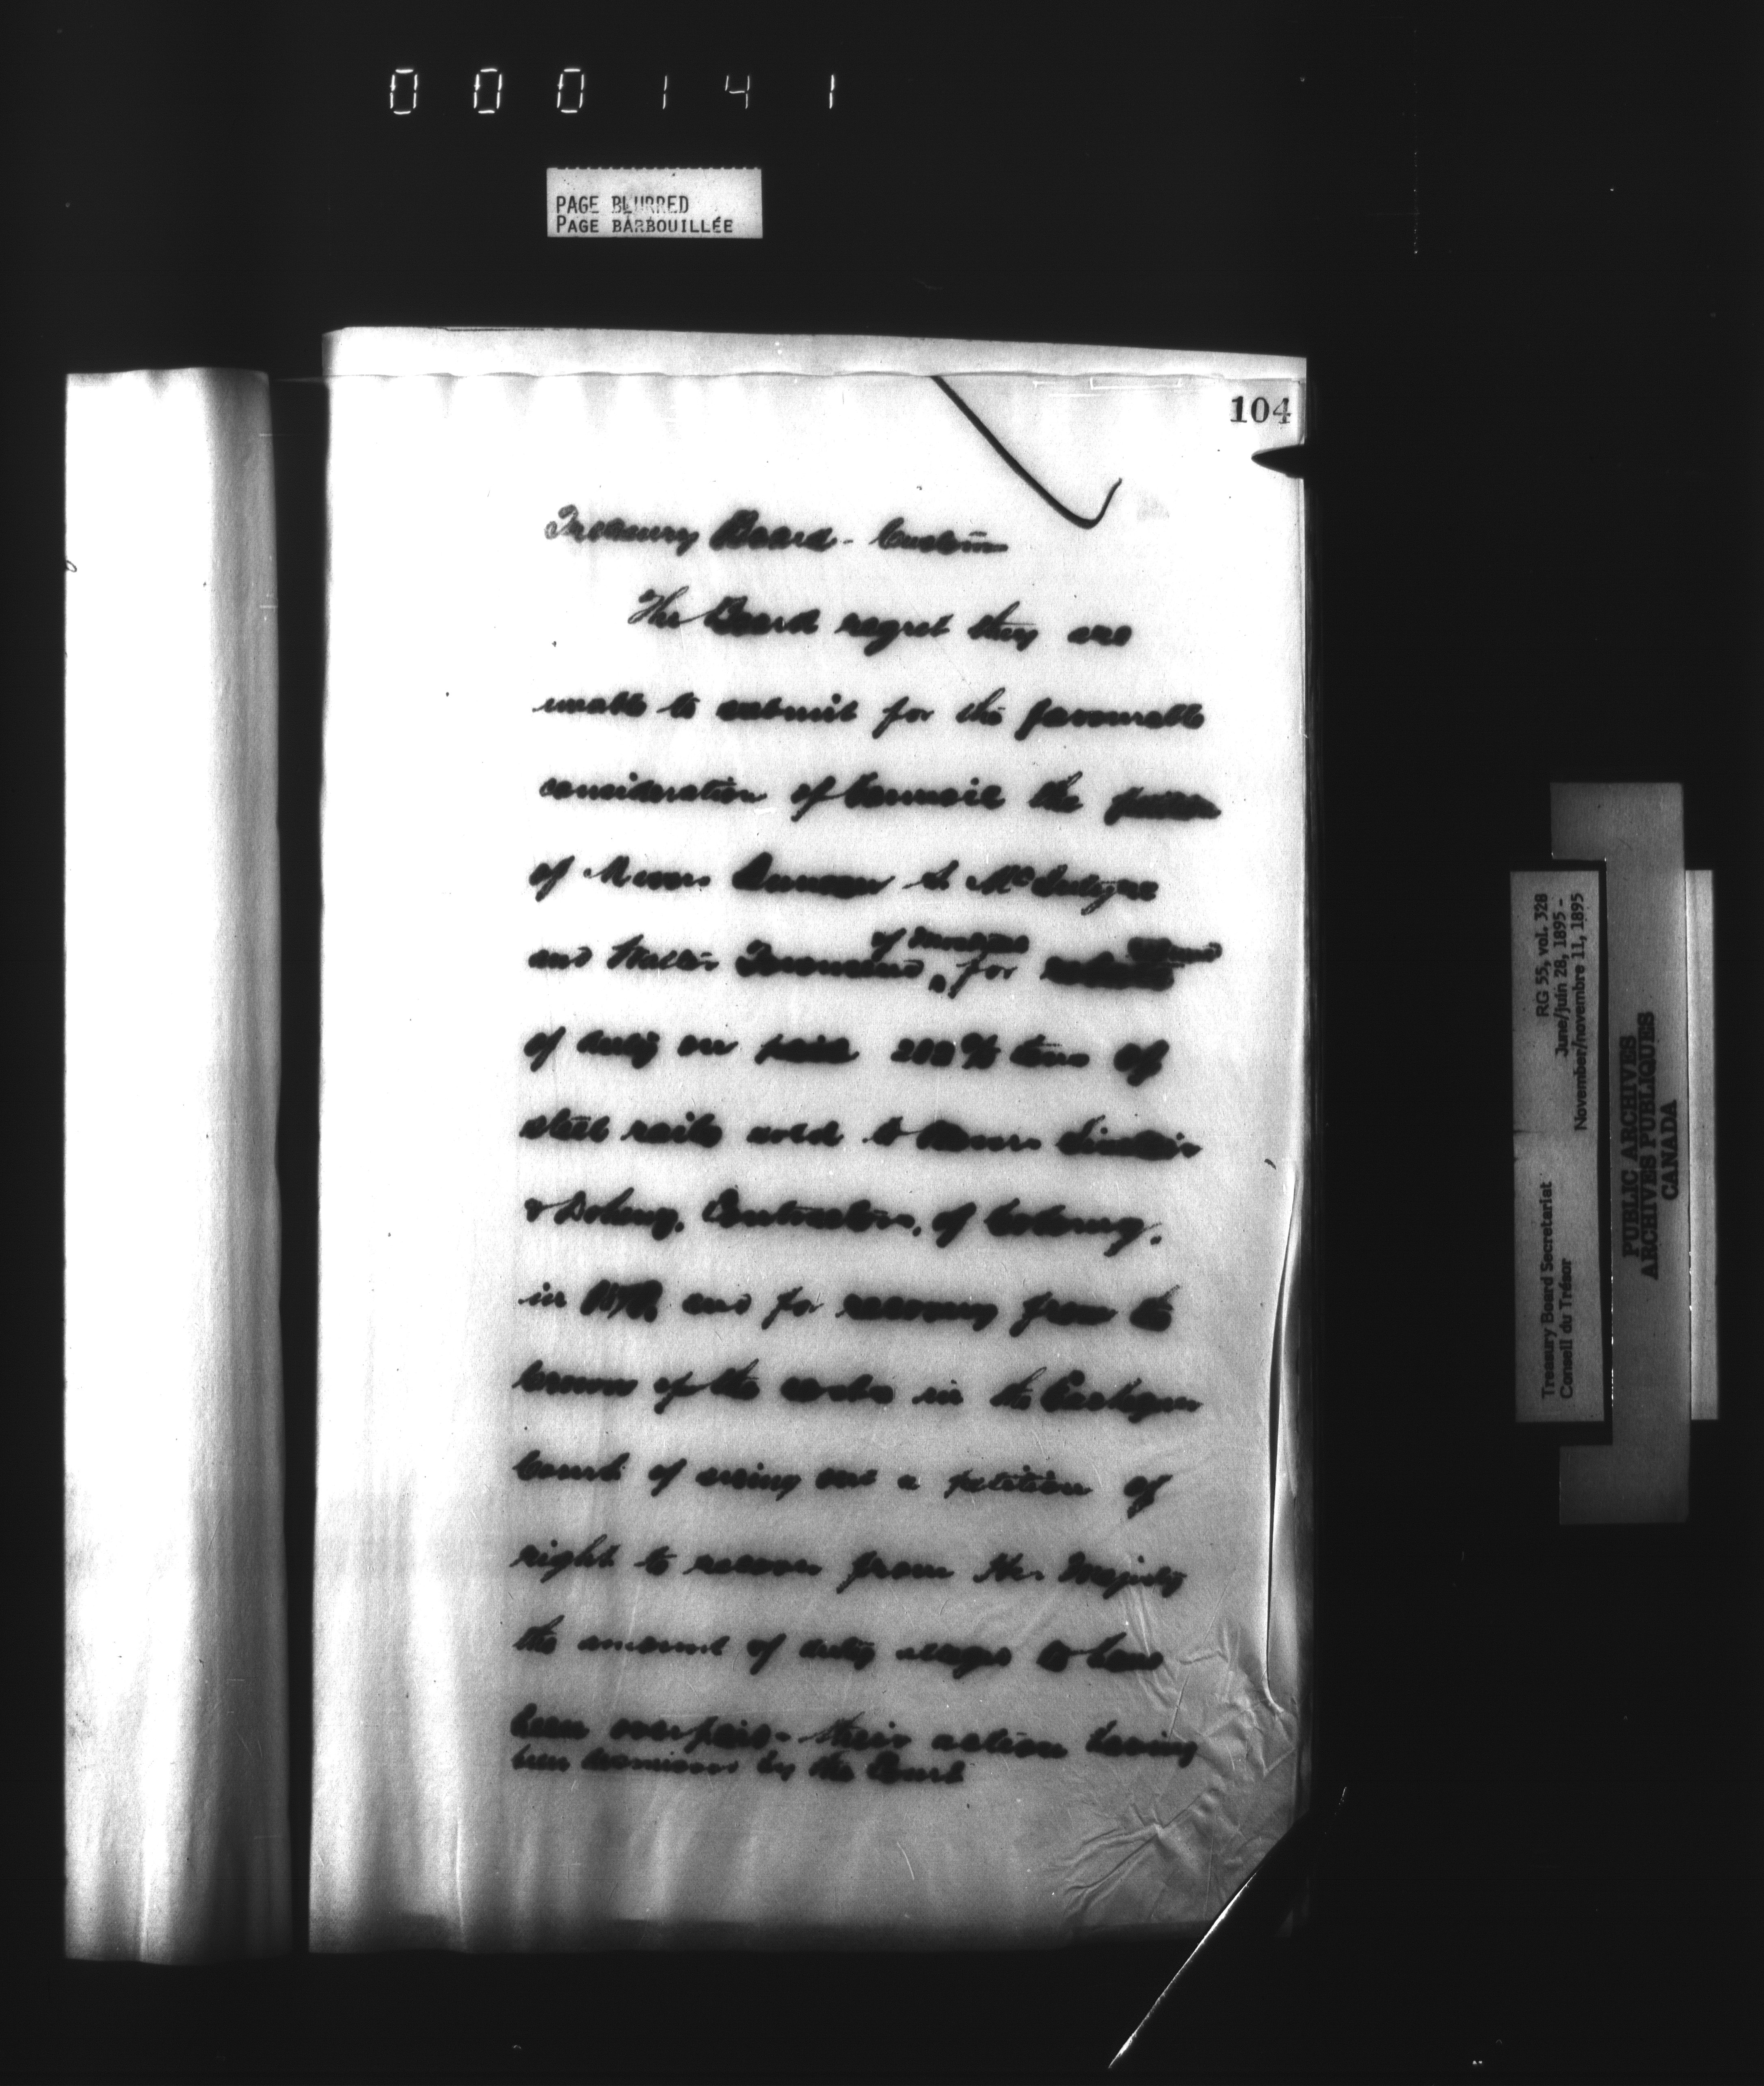 000141
PAGE BLURRED
PAGE BARBOUILLÉE
104
Treasury Board - Customs
The Board regret they are
unable to submit for the favourable
consideration of Council the petition
of Messrs Duncan McIntyre
and Walter Townsend, of Montreal for
of duty on tons of
steel rails sold to Messrs Sinclair
& Doheny, Contractors, of Cobourg,
in and for recovery from the
Crown of the costs in the Exchequer
Court of suing out a petition of
right to recover from Her Majesty
the amount of duty alleged to have
been overpaid - their action having
been dismissed by the Court
Treasury Board Secretariat RG 55, vol. 328
Conseil du Trésor June/juin 28, 1895 -
November/novembre 11, 1895
PUBLIC ARCHIVES
ARCHIVES PUBLIQUES
CANADA